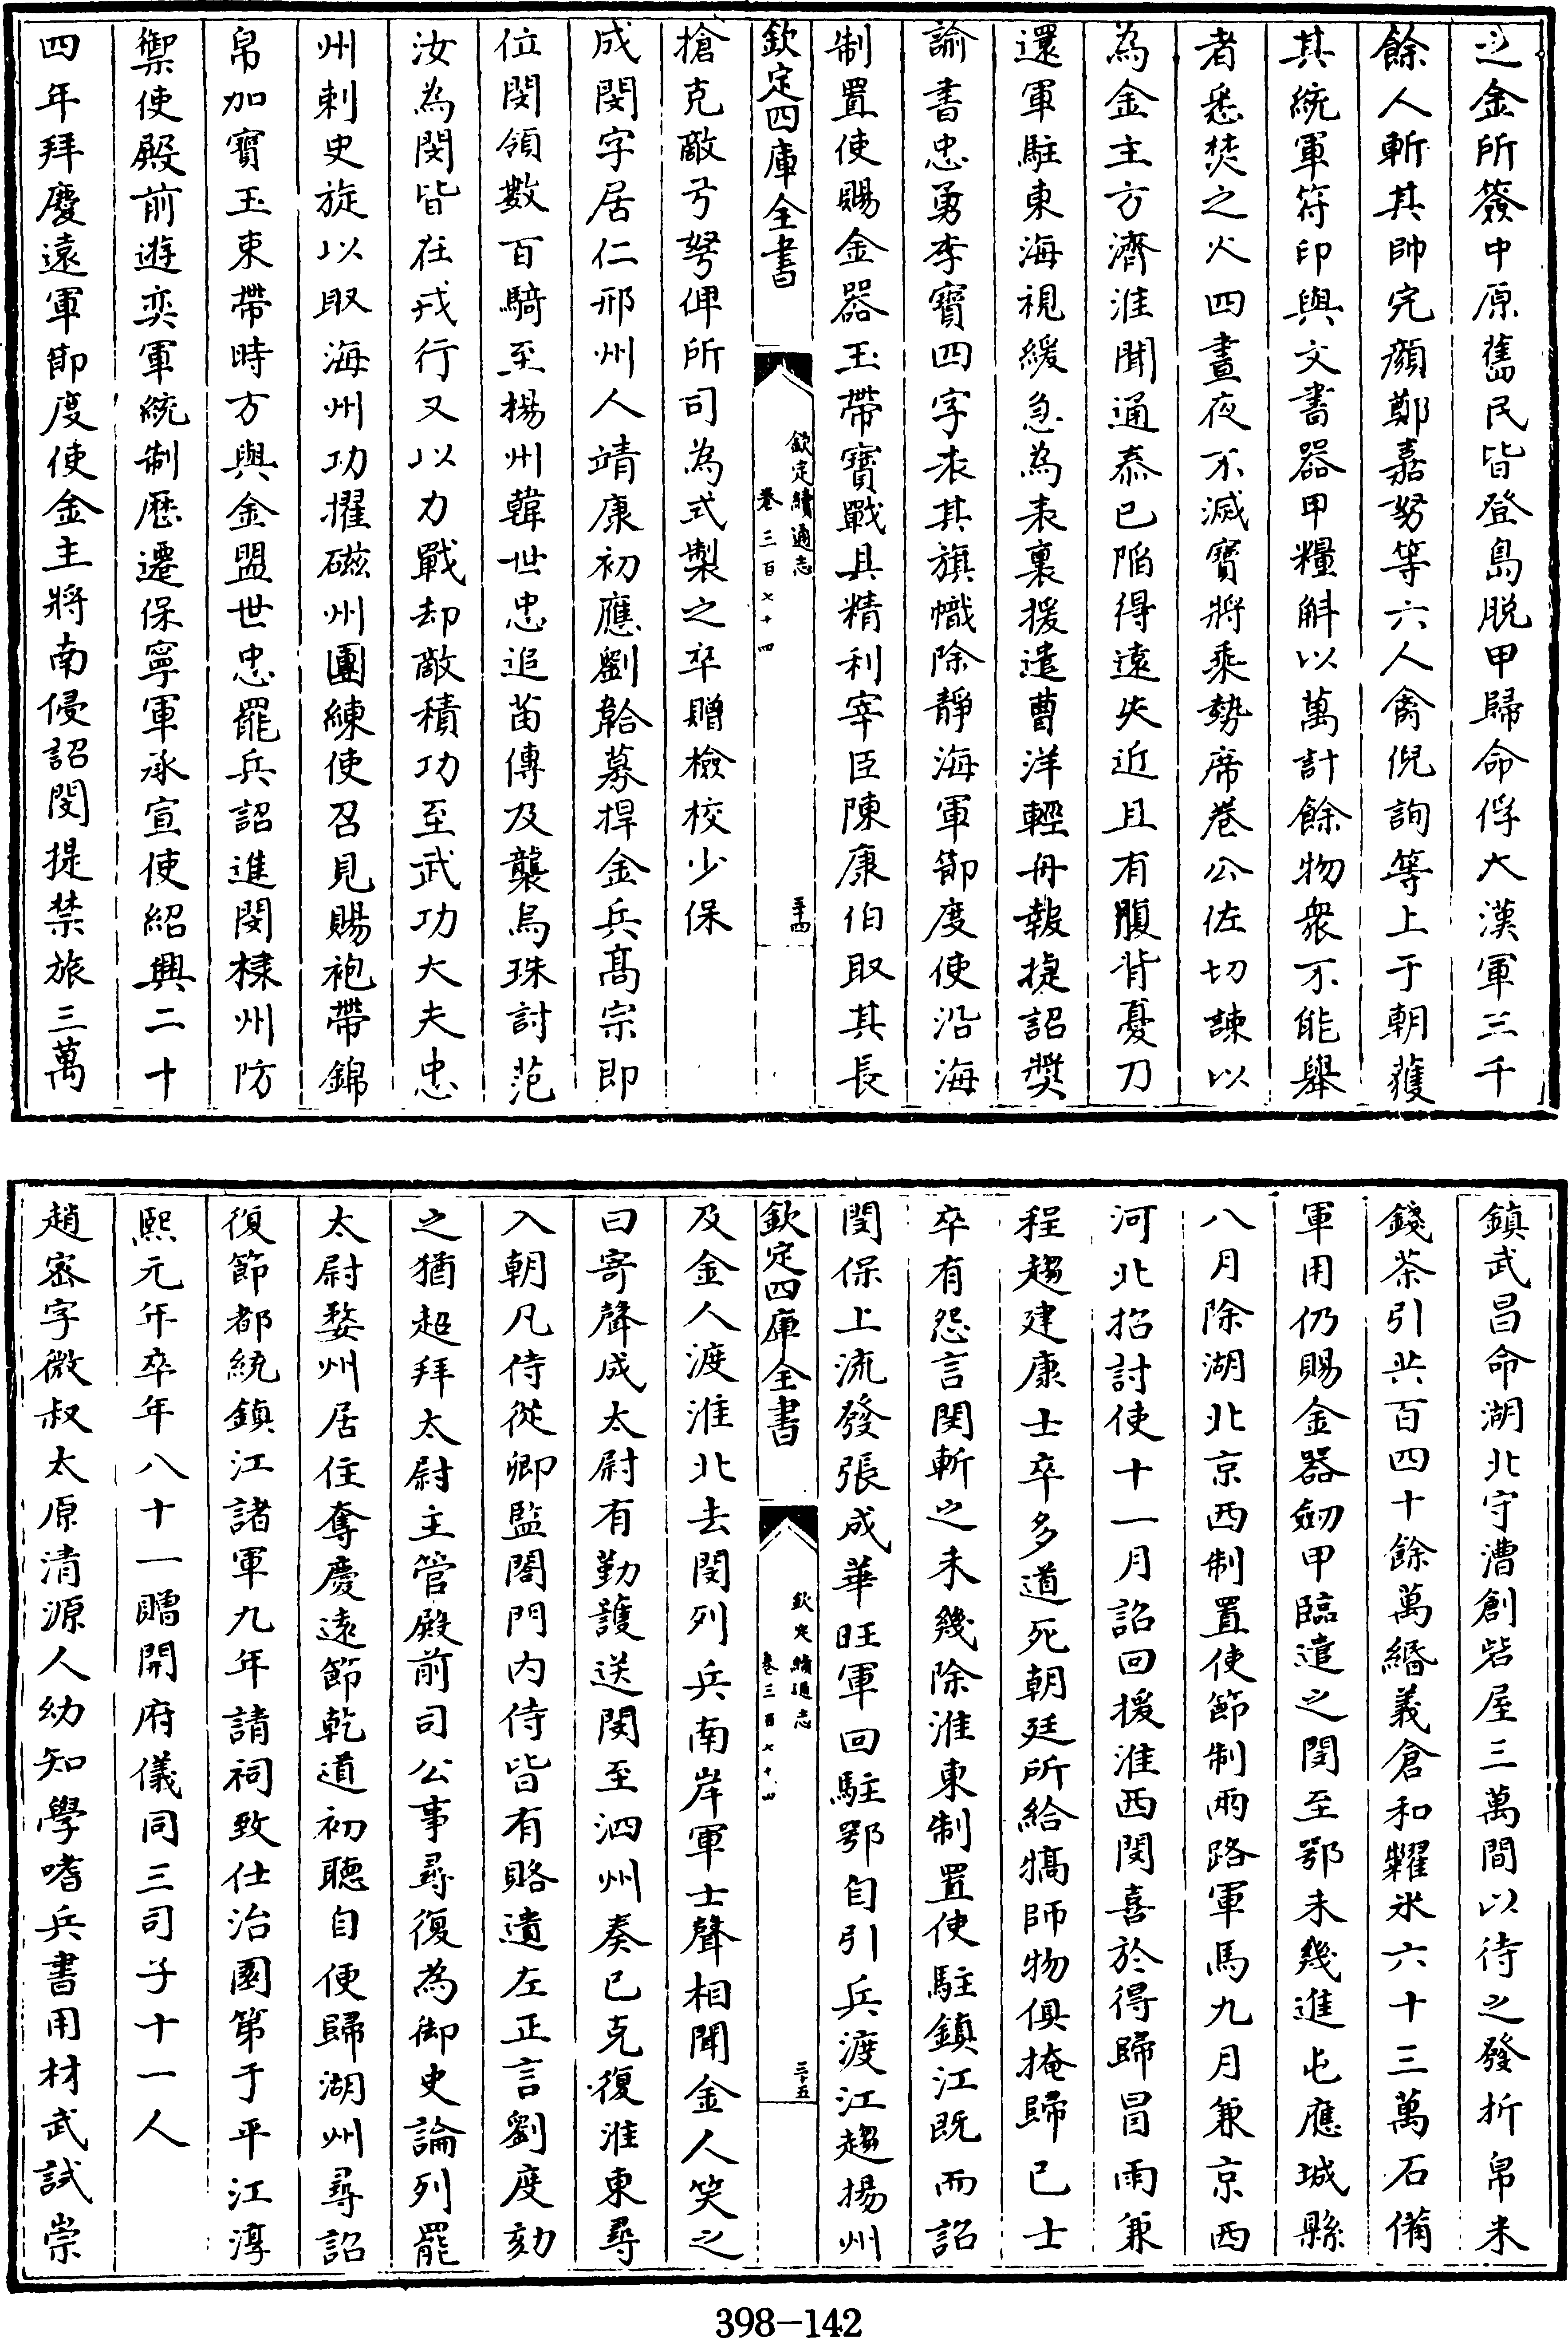 之金所簽中原舊民皆登島脫甲歸命俘大漢軍三千
餘人斬其帥完顏鄭嘉努等六人禽倪詢等上于朝獲
其統軍符印與文書器甲糧斛以萬計餘物衆不能舉
者悉焚之火四晝夜不滅寶將乘勢席卷公佐切諫以
為金主方濟淮聞通泰已陷得遠失近且有腹背憂乃
還軍駐東海視緩急為表裏援遣曹洋輕舟報捷詔奬
諭書忠勇李寶四字表其旗幟除靜海軍節度使沿海
制置使賜金器玉帶寶戰具精利宰臣陳康伯取其長
欽定四庫全書
欽定續通志
卷三百七十四
三十四
搶克敵弓弩俾所司為式製之卒贈檢校少保
成閔字居仁邢州人靖康初應劉韐募捍金兵高宗即
位閔領數百騎至揚州韓世忠追苗傅及襲烏珠討范
汝為閔皆在戎行又以力戰却敵積功至武功大夫忠
州刺史旋以取海州功擢磁州團練使召見賜袍帶錦
帛加寶玉束帶時方與金盟世忠罷兵詔進閔棣州防
禦使殿前遊奕軍統制歷遷保寧軍承宣使紹興二十
四年拜慶遠軍節度使金主將南侵詔閔提禁旅三萬
鎮武昌命湖北守漕創砦屋三萬間以待之發折帛米
錢茶引共百四十餘萬緡義倉和糴米六十三萬石備
軍用仍賜金器劒甲臨遣之閔至鄂未幾進屯應城縣
八月除湖北京西制置使節制兩路軍馬九月兼京西
河北招討使十一月詔回援淮西閔喜於得歸冒雨兼
程趨建康士卒多道死朝廷所給犒師物俱掩歸已士
卒有怨言閔斬之未幾除淮東制置使駐鎮江既而詔
閔保上流發張成華旺軍回駐鄂自引兵渡江趨揚州
欽定四庫全書
欽定續通志
卷三百七十四
三十五
及金人渡淮北去閔列兵南岸軍士聲相聞金人笑之
曰寄聲成太尉有勤護送閔至泗州奏已克復淮東尋
入朝凡侍從卿監閤門內侍皆有賂遺左正言劉度劾
之猶超拜太尉主管殿前司公事尋復為御史論列罷
太尉婺州居住奪慶遠節乾道初聽自便歸湖州尋詔
復節都統鎮江諸軍九年請祠致仕治園第于平江淳
熙元年卒年八十一贈開府儀同三司子十一人
趙密字微叔太原清源人幼知學嗜兵書用材武試崇
398-142